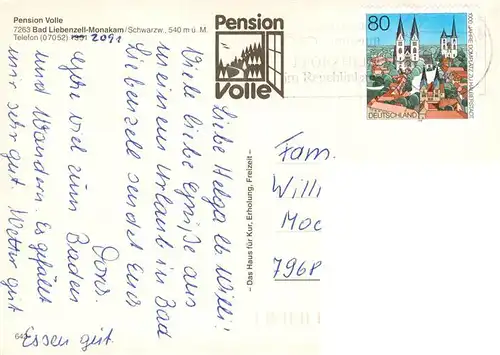 Pension Volle
7263 Bad Liebenzell-Monakam/Schwarzw., 540 m ü. M.
Telefon (07052) 1391 2091
Pension
Volle
80
1000 JAHRE DOMPLATZ ZU HALBERSTADT
DEUTSCHLAND
– Das Haus für Kur, Erholung, Freizeit –
Liebe Helga u. Willi!
Viele liebe Grüße aus
unserem Urlaub in Bad
Liebenzell sendet Euch
Doris.
viel zum Baden
und Wandern. Es gefällt
mir sehr gut. Wetter gut
Essen gut.
Fam.
Willi
Moc
796P